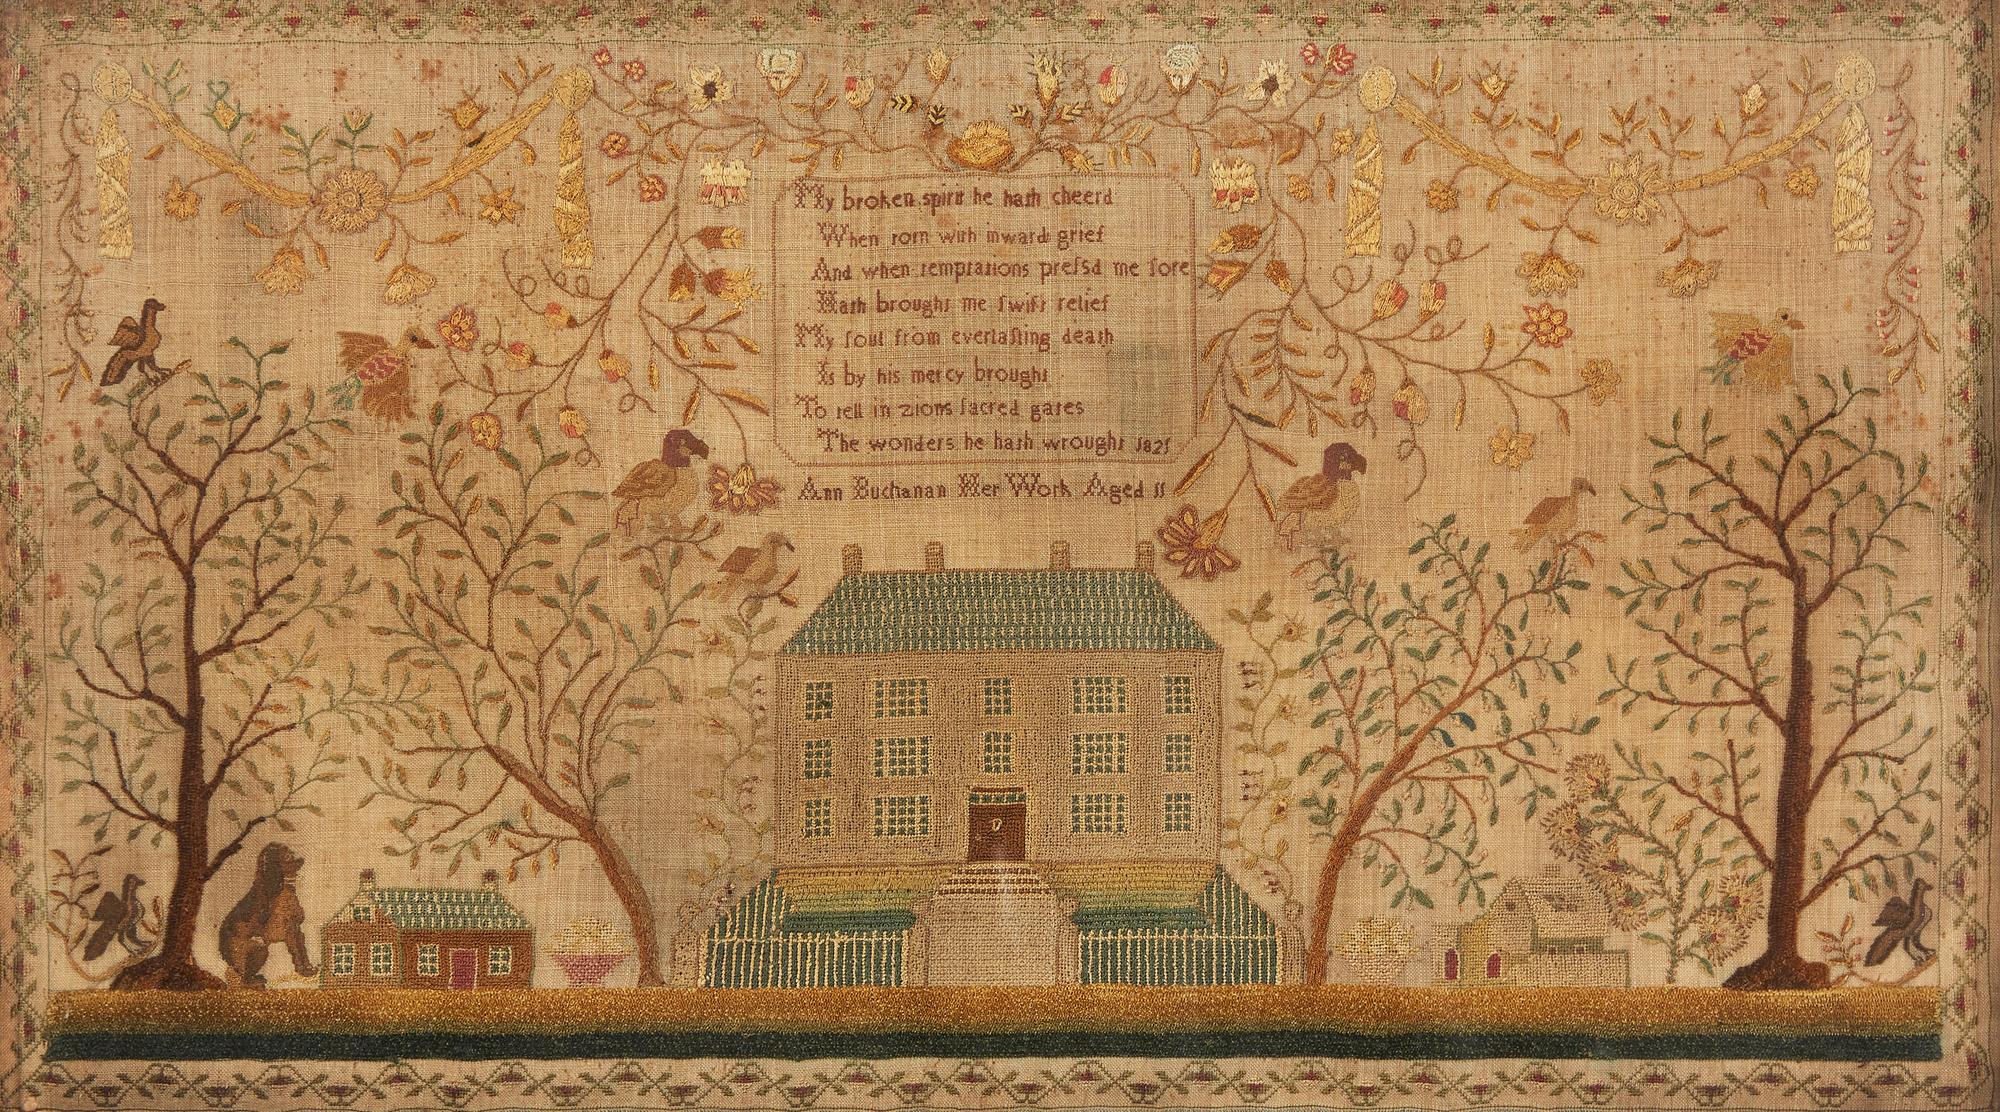 My broken spirit he hath cheerd
When torn with inward grief
And when temptations preſsd me ſore
Hath brought me ſwift relief
My ſoul from everlaſting death
Is by his mercy brought
To tell in zions ſacred gates
The wonders he hath wrought 1825
Ann Buchanan Her Work Aged 11